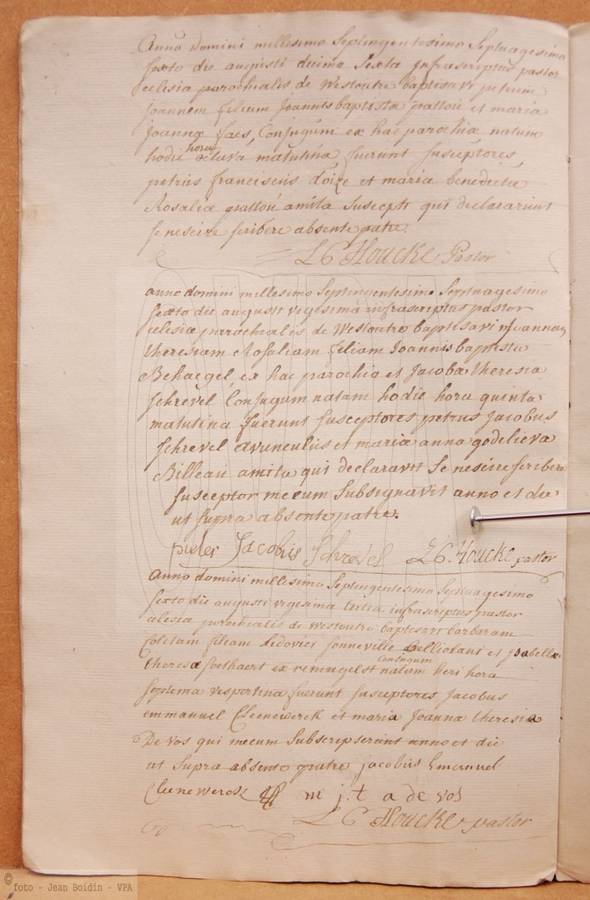 Anno domini millesimo Septingentesimo Septuagesimo
sexto die augusti decima Sexta infrascriptus pastor
eclesia parochialis de Westoutre baptisavi petrum
Joannem filium Joannis baptista et maria
Joanna faes, Conjugum ex hac parochia natum
hodie hora octava matutina fuerunt susceptores
petrus franciscus et maria benedicta
Rosalia amita Suscepti qui declararunt
se nescire scribere absente patre.
L C Houcke Pastor
anno domini millesimo Septingentesimo Septuagesimo
sexto die augusti vigesima infrascriptus pastor
eclesia parochialis de Westoutre baptisavi Joannam
theresiam Rosaliam filiam Joannis baptista
Behaegel, ex hac parochia et Jacoba theresia
Schrevel Conjugum natam hodie hora quinta
matutina fuerunt susceptores petrus Jacobus
Schrevel avunculus et maria anna godelieva
Billeau amita qui declaravit Se nescire scribere
susceptor mecum Subsignavit anno et die
ut supra absente patre.
pieter Jacobus Schrevel L C Houcke pastor
Anno domini millesimo Septingentesimo Septuagesimo
sexto die augusti vigesima tertia infrascriptus pastor
eclesia parochialis de Westoutre baptisavi barbaram
filiam Ludovici et Isabella
theresia ex reningelst Conjugum natam heri hora
Septema vespertina fuerunt susceptores Jacobus
emmanuel Cleenewerck et maria Joanna theresia
De vos qui mecum Subscripserunt anno et die
ut Supra absente patre jacobus Emanuel
Cleenewerck m j.t a de vos
L C Houcke pastor
© foto - Jean Boidin - VPA